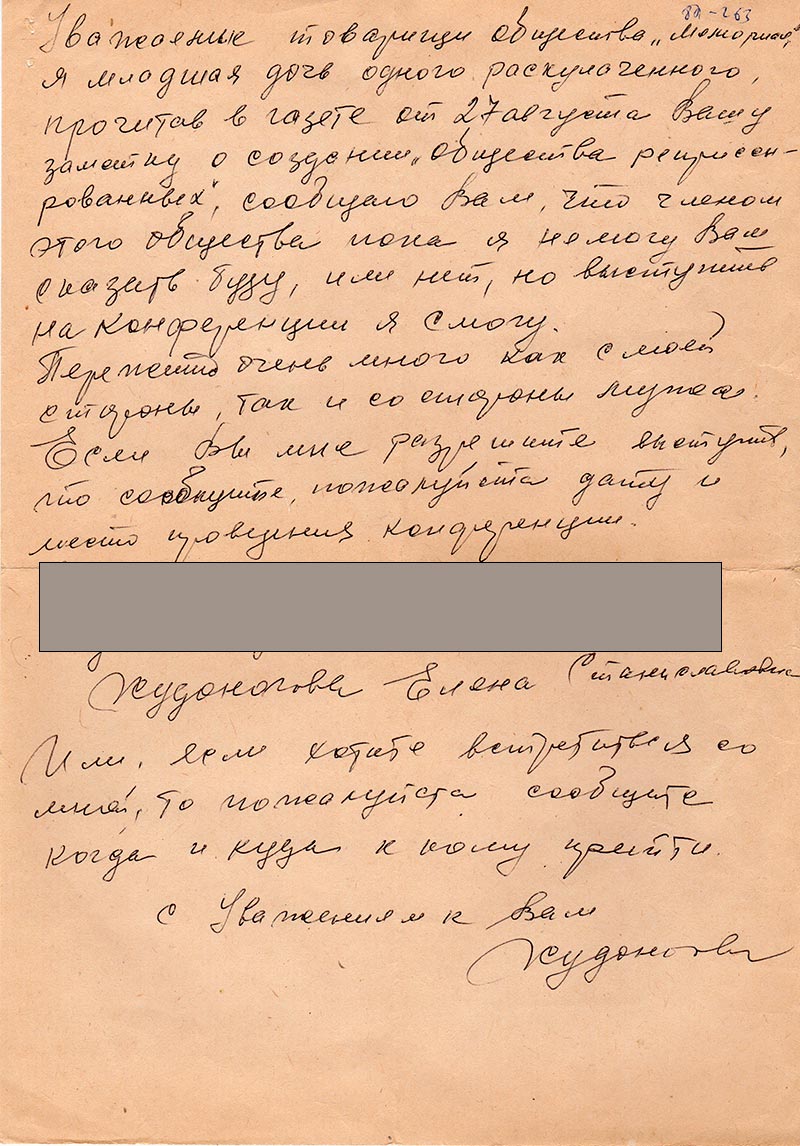 89-263
Уважаемые товарищи общества „Мемориал",
я младшая дочь одного раскулаченного,
прочитав в газете от 27 августа Вашу
заметку о создании „Общества репрессен-
рованных", сообщаю Вам, что членом
этого общества пока я не могу Вам
сказать буду, или нет, но выступить
на конференции я смогу.
Пережито очень много как с моей
стороны, так и со стороны мужа.
Если Вы мне разрешите выступить,
то сообщите, пожалуйста дату и
место проведения конференции.
Худоногова Елена Станиславовна
Или, если хотите встретиться со
мной, то пожалуйста сообщите
когда и куда к кому прийти.
с Уважением к Вам
Худоногова